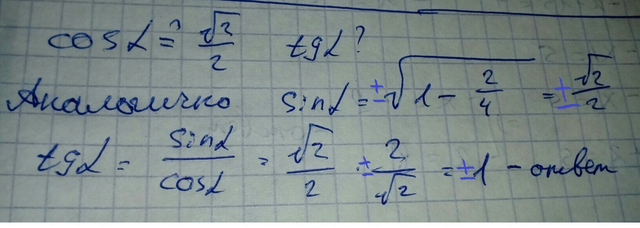 cosα = ? √2/2 tgα?
Аналогично sinα = ±√(1 - 2/4) = ±√2/2
tgα = sinα/cosα = √2/2 · ± 2/√2 = ±1 - ответ